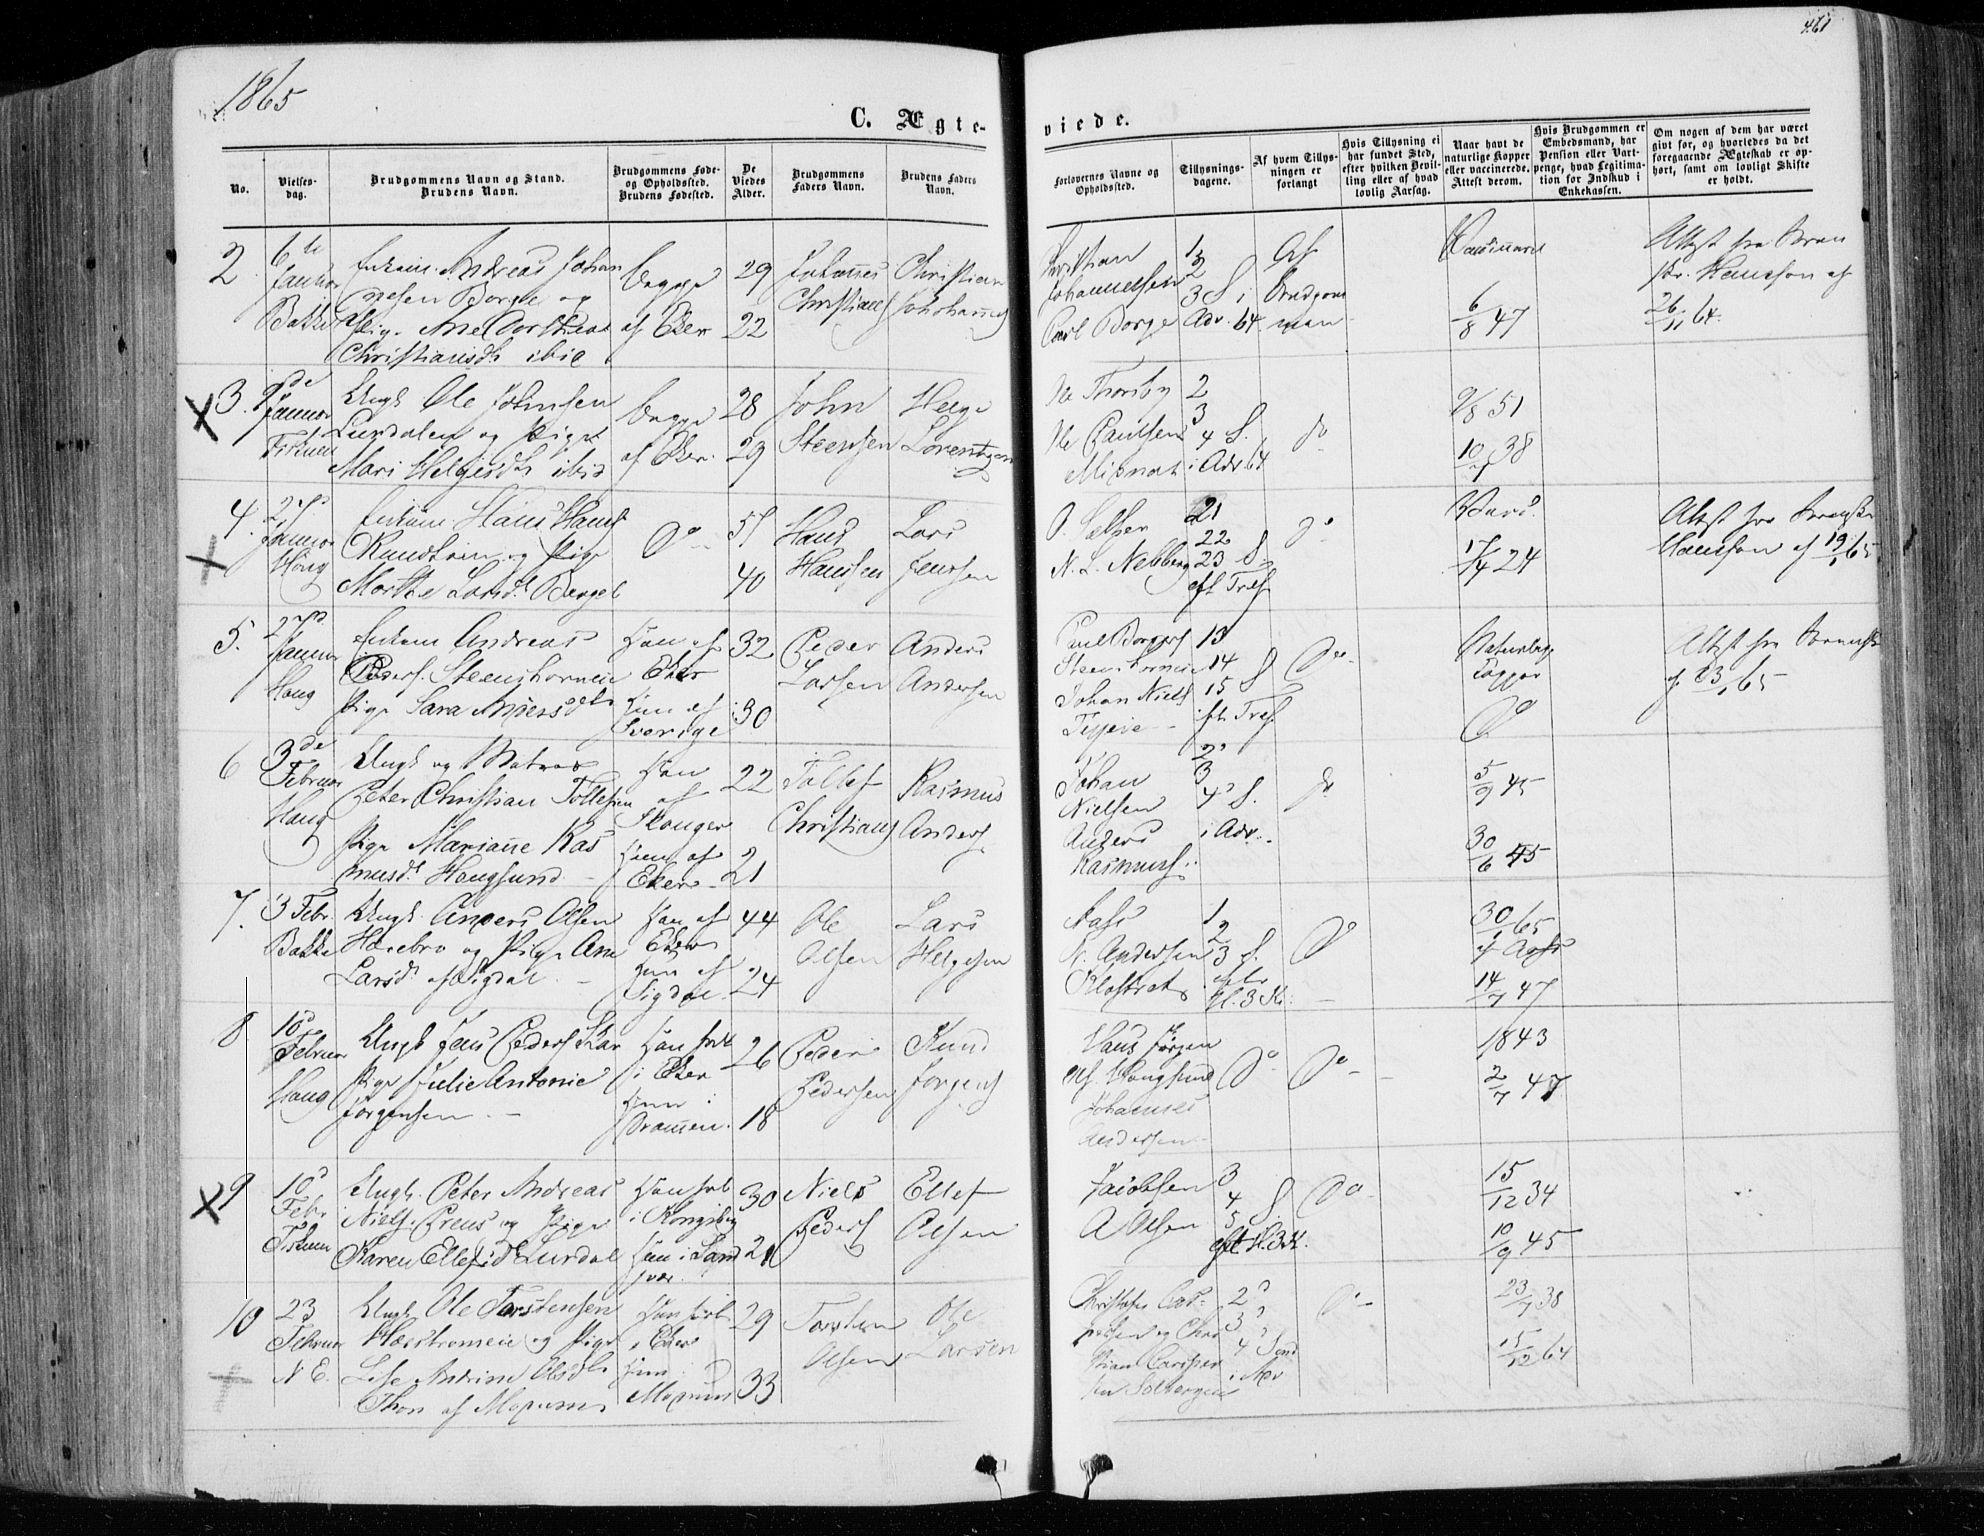 1865
461
C. Ægte-
viede.
No.
Vielses-
dag.
Brudgommens Navn og Stand.
Brudens Navn.
Brudgommens Føde-
og Opholdssted.
Brudens Fødested.
De
Viedes
Alder.
Brudgommens
Faders Navn.
Brudens Faders
Navn.
Forlovernes Navne og
Opholdssted.
Tillysnings-
dagene.
Af hvem Tillys-
ningen er
forlangt
Hvis Tillysning ei
har fundet Sted,
efter hvilken Bevil-
ling eller af hvad
lovlig Aarsag.
Naar havt de
naturlige Kopper
eller vaccinerede.
Attest derom.
Hvis Brudgommen er
Embedsmand, har
Pension eller Vart-
penge, hvad Legitima-
tion for Indskud i
Enkekassen.
Om nogen af dem har været
gift før, og hvorledes da det
foregaaende Ægteskab er op-
hørt, samt om lovligt Skifte
er holdt.
2
6te
Januar
Bakke
Enkem. Andreas Johan
nesen Borge og
Pige Ane Dorthea
Christiansd. ibid
begge
af Eker
29
22
Johannes
Christians
Christian
Johannes
Christian
Johannessen
Carl Borge
1
2
3 S i
Adv. 64
Af
Brudgom
men
Vaccineret
6/8 47
Attest fra
Hansson af
26/11 64.
3.
Januar
Fiskum
Ungk Ole Johnsen
Lurdalen og Pige
Mari Helgesd. ibid
begge
af Eker.
28
29
John
Steensen
Helge
Lorentzen
Ne Thorsby
Ne Paulsen
2
3
4 S.
i Adv 64
do
9/8 51
10/7 38
4.
27d
Januar
Houg
Enkem. Hans Hans
og Pige
Marthe Larsd. Berget
Do
51
40
Hans
Hanssen
Lars
Jenssen
N. L. Nebberg
21
22
23 S
eft Tref
do
Vacc.
17/4 24
Attest fra
Hansson af 19/1 65
5.
27d
Januar
Houg
Enkem Andreas
Peders. Steenshorneie
Pige Sara Andersdt
Han af
Eker
Hun af
Sverige
32
30
Peder
Larsen
Anders
Andersen
Paul Borgers
Steenshorneie
Johan Niels
13
14 S
15
eft Tref
Do
Naturlige
Kopper
Do
Attest fra
af 23/1 65
6
3de
Februar
Houg
Ungk og Matros
Peter Christian Tollefsen
Pige Mariane Ras
musd. Hougsund
Han
af
Skouger
Hun af
Eker
22
21
Tollef
Christians
Rasmus
Anders
Johan
Nielsen
Anders
Rasmuss.
2
3
4 S.
i Adv.
do
5/9 45
30/6 45
7.
3 Febr.
Bakke
Ungk. Anders Olsen
Horebro og Pige Ane
Larsd. af Sigdal
Han af
Eker
Hun af
Sigdal
44
24
Ole
Olsen
Lars
Helgesen
N. Andersen
Klostret
1
2
3 S.
efter
Hl. 3 K.
Do
30/1 65
14/7 47
8
10d
Februar
Houg
Ungk Jens Peders Skar
Pige Julie Antonie
Jørgensen
Han født
i Eker
Hun i
Dramen
26
18
Peder
Pedersen
Knud
Jørgens
Hans Jørgen
Hougsund
Johannes
Andersen
Do
Do
1843
2/7 47
9
10d
Febr
Fiskum
Ungk. Peter Andreas
Niels. Preus og Pige
Karen Ellefsd Lurdal
Han født
i Kongsberg
Hun i Sand
svær
30
21
Niels
Peders
Ellef
Olsen
Jacobsen
A Olsen
3
4 S
5
eft Hl. 3 K.
Do
15/12 34
10/9 45
10
23
Februar
N E.
Ungk Ole Torstensen
og Pige
Lise Andrine Olsdt
Thon af Modum
Han født
i Eker
Hun
Modum
29
33
Torsten
Olsen
Ole
Larsen
og Chris
tian Casper
sen Solbergeie
2
3
4 Sønd
i Adv
Do
23/7 38
15/12 64